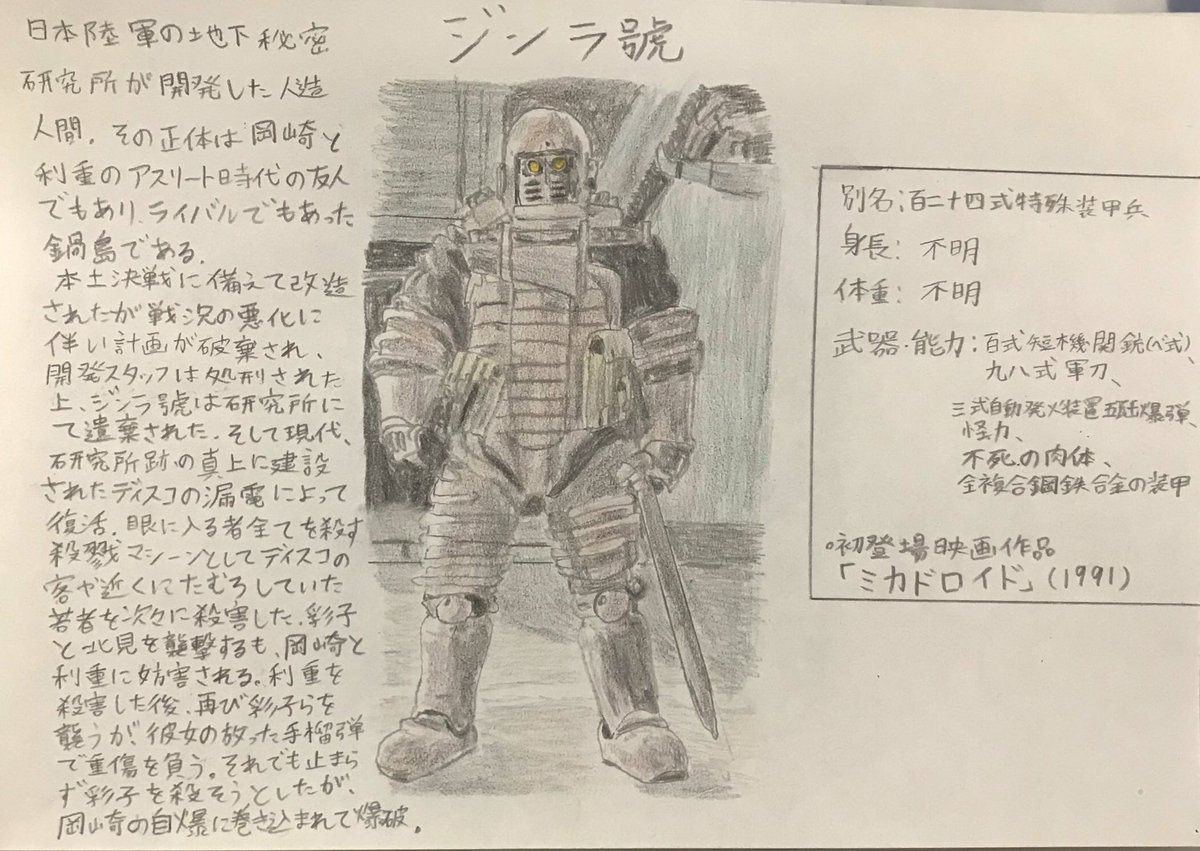 ジンラ號
日本陸軍の地下秘密
研究所が開発した人造
人間。その正体は岡崎と
利重のアスリート時代の友人
でもあり、ライバルでもあった
鍋島である。
本土決戦に備えて改造
されたが戦況の悪化に
伴い計画が破棄され、
開発スタッフは処刑された
上、ジンラ號は研究所に
て遺棄された。そして現代、
研究所跡の真上に建設
されたディスコの漏電によって
復活。眼に入る者全てを殺す
殺戮マシーンとしてディスコの
客や近くにたむろしていた
若者を次々に殺害した。彩子
と北見を襲撃するも、岡崎と
利重に妨害される。利重を
殺害した後、再び彩子らを
襲うが、彼女の放った手榴弾
で重傷を負う。それでも止まら
ず彩子を殺そうとしたが、
岡崎の自爆に巻き込まれて爆破。
別名:百二十四式特殊装甲兵
身長: 不明
体重: 不明
武器・能力:百式短機関銃(ベ式)、
九八式軍刀、
三式自動発火装置五瓩爆弾、
怪力、
不死の肉体、
全複合鋼鉄合金の装甲
◦初登場映画作品
「ミカドロイド」(1991)